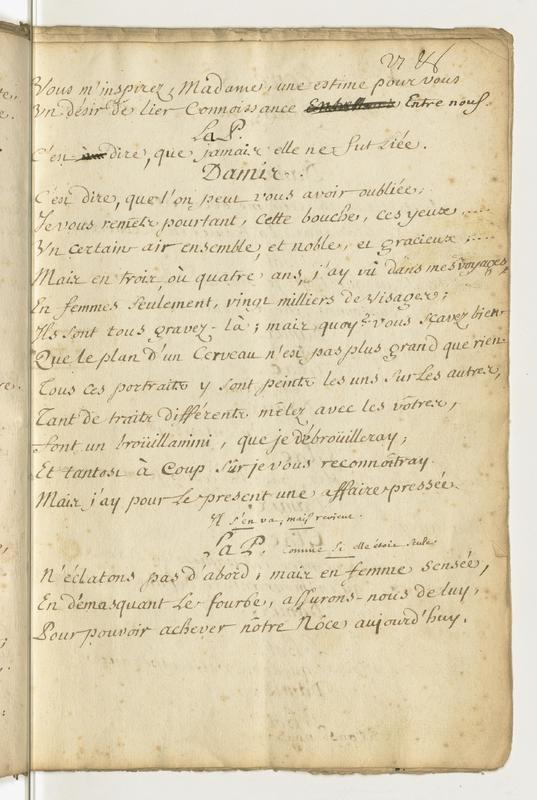 27
Vous m'inspirez, Madame, une estime pour vous
Un désir de lier Connoissance Entre nous.
La P.
C'est dire, que jamais elle ne fut Liée.
Damis.
C'est dire, que l'on peut vous avoir oubliée,
Je vous remêts pourtant, Cette bouche, ces yeux ....
Un certain air ensemble, et noble, et gracieux ;....
Mais en trois, où quatre ans, j'ay vû dans mes voyages,
En femmes seulement, vingt milliers de visages ;
Ils sont tous gravez-là ; mais quoy ? vous sçavez bien
Que le plan d'un Cerveau n'est pas plus grand que rien.
Tous ces portraits y sont peints les uns sur Les autres,
Tant de traits différents mêlez avec les vôtres,
Font un broüillamini, que je débroüilleray ;
Et tantost à Coup sûr je vous reconnoîtray.
Mais j'ay pour Le present une affaire pressée.
Il s'en va, mais revient.
La P. Comme si elle étoit seule.
N'éclatons pas d'abord ; mais en femme sensée,
En démasquant Le fourbe, assurons-nous de luy,
Pour pouvoir achever nôtre Nôce aujourd'huy.